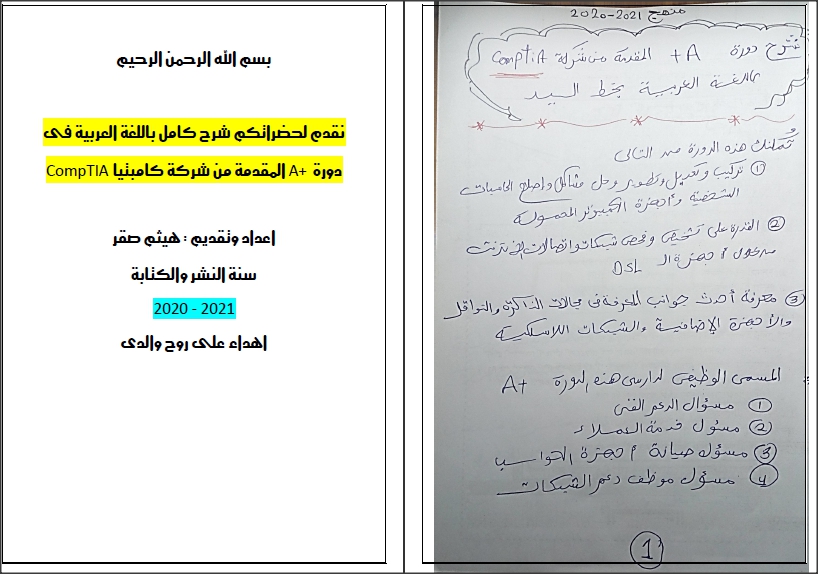 بسم الله الرحمن الرحيم
نقدم لحضراتكم شرح كامل باللغة العربية فى
دورة +A المقدمة من شركة كامبتيا CompTIA
اعداد وتقديم : هيثم صقر
سنة النشر والكتابة
2020 - 2021
اهداء على روح والدى
منهج 2021-2020
شرح دورة A+ المقدمة من شركة CompTiA
باللغة العربية بخط السيد
تُمكنك هذه الدورة من التالى
① تركيب وتعديل وتطوير وحل مشاكل واصلاح الحاسبات
الشخصية وأجهزة الكمبيوتر المحمولة
② القدرة على تشخيص وفحص شبكات واتصالات الانترنت
من خلال أجهزة الـ DSL
③ معرفة أحدث جوانب المعرفة فى مجالات الذاكرة والنواقل
والأجهزة الإضافية والشبكات اللاسلكية
المسمى الوظيفى لدارسى هذه الدورة A+
① مسؤال الدعم الفنى
② مسؤل خدمة العملاء
③ مسؤل صيانة أجهزة الحواسب
④ مسؤل موظف دعم الشبكات
1